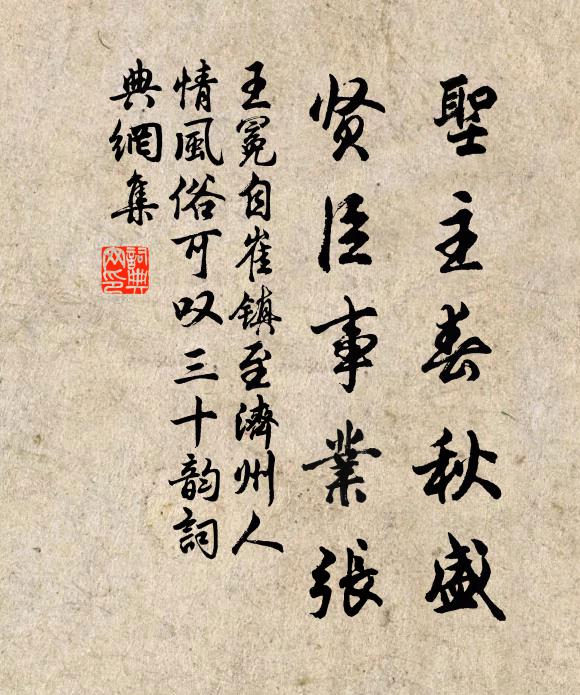 聖主春秋盛
贤臣事業張
王冕自崔镇至濟州人
情風俗可叹三十韵詞
典網集
詞典網印